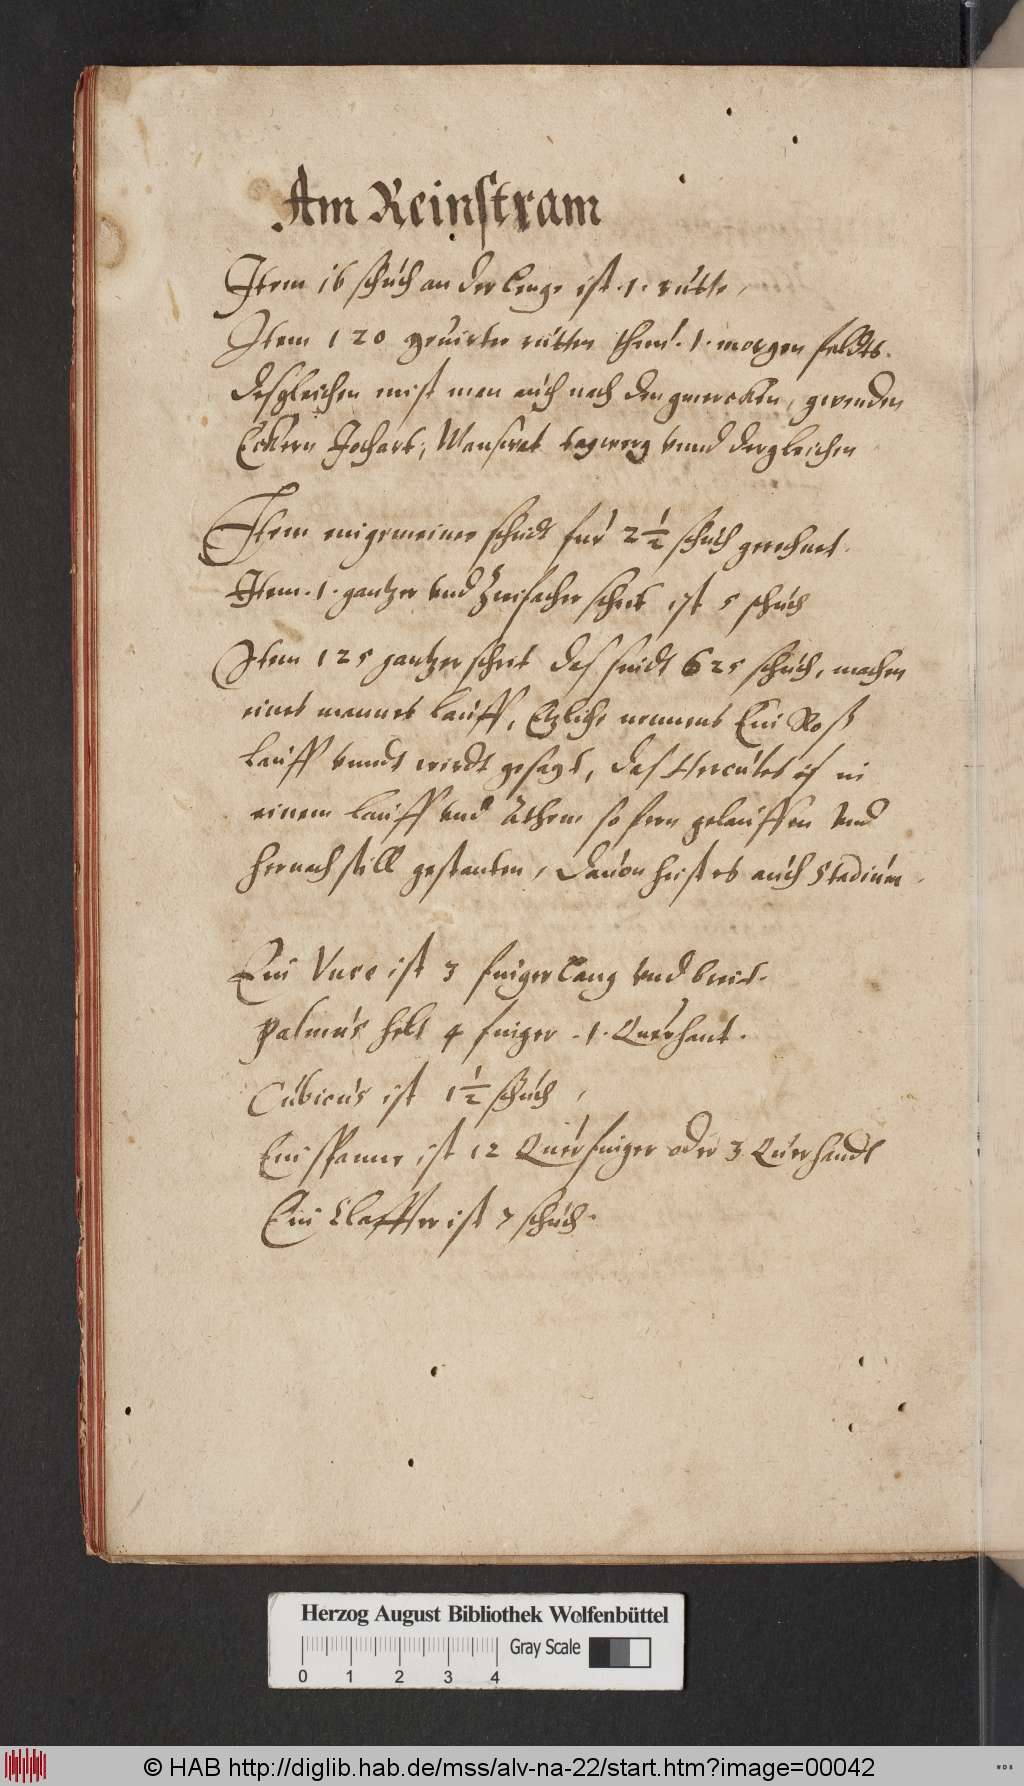 Am Reinstram
Item 16 schůch an der lenge ist .1. růtte,
Item 120 geuirter růtten thun .1. morgen feldts.
desgleichen mist man auch nach den gewenden
Eckern Jochart, Manscrat tagwerg vnnd dergleichen
Item ein gemeiner schridt fur 2 1/2 schůch gerechnet.
Item .1. gantzer vnd Zweifacher schrit ist 5 schůch
Item 125 gantzer schrit das sindt 625 schůch, machen
eines mannes lauff, Etzliche nennens Ein Roß
lauff vnndt wirdt gesagt, das Hercules in
einem lauff vnd Athem so fern gelauffen vnd
hernach still gestanten, dauon heist es auch Stadium
Ein Vnce ist 3 finger lang vnd breit.
Palmus helt 4 finger .1. Querhant.
Cubicus ist 1 1/2 schůch,
Ein spanne ist 12 Querfinger oder 3 Querhandt
Ein Claffter ist 7 schůch.
Herzog August Bibliothek Wolfenbüttel
0 1 2 3 4 Gray Scale
© HAB http://diglib.hab.de/mss/alv-na-22/start.htm?image=00042